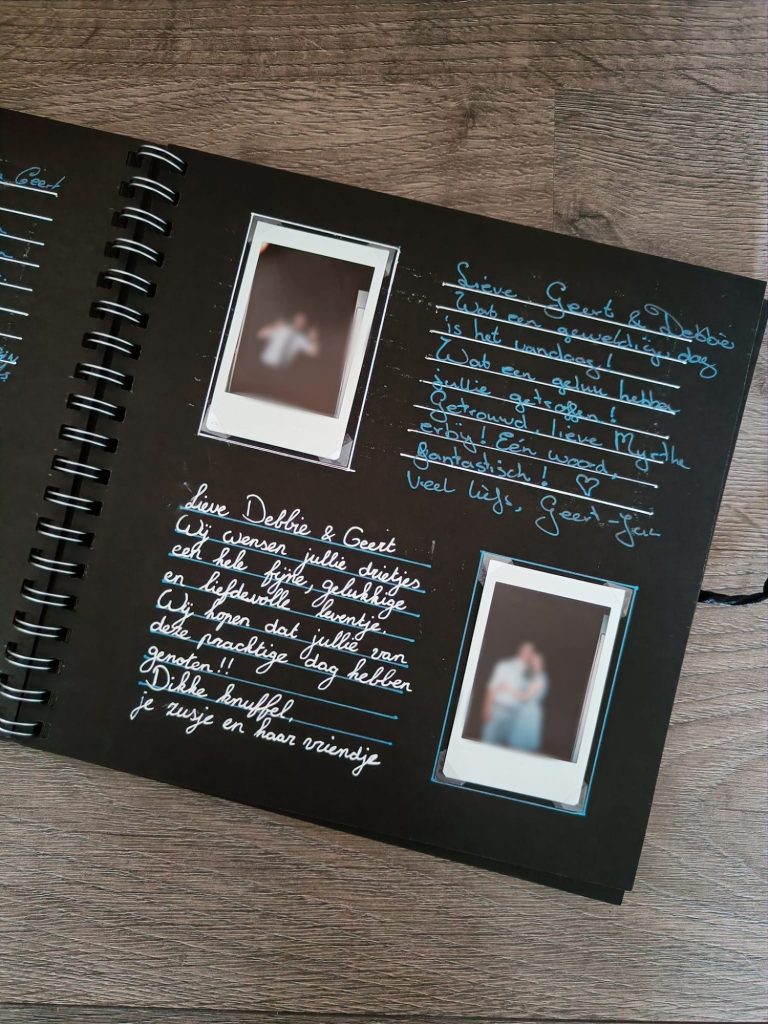 Geert
Lieve Geert & Debbie
Wat een geweldige dag
is het vandaag!
Wat een geluk hebben
jullie getroffen!
Getrouwd, lieve Myrthe
erbij! Eén woord,
fantastisch! ♡
Veel liefs, Geert-Jan
Lieve Debbie & Geert
Wij wensen jullie drietjes
een hele fijne, gelukkige
en liefdevolle leventje.
Wij hopen dat jullie van
deze prachtige dag hebben
genoten!!
Dikke knuffel,
je zusje en haar vriendje